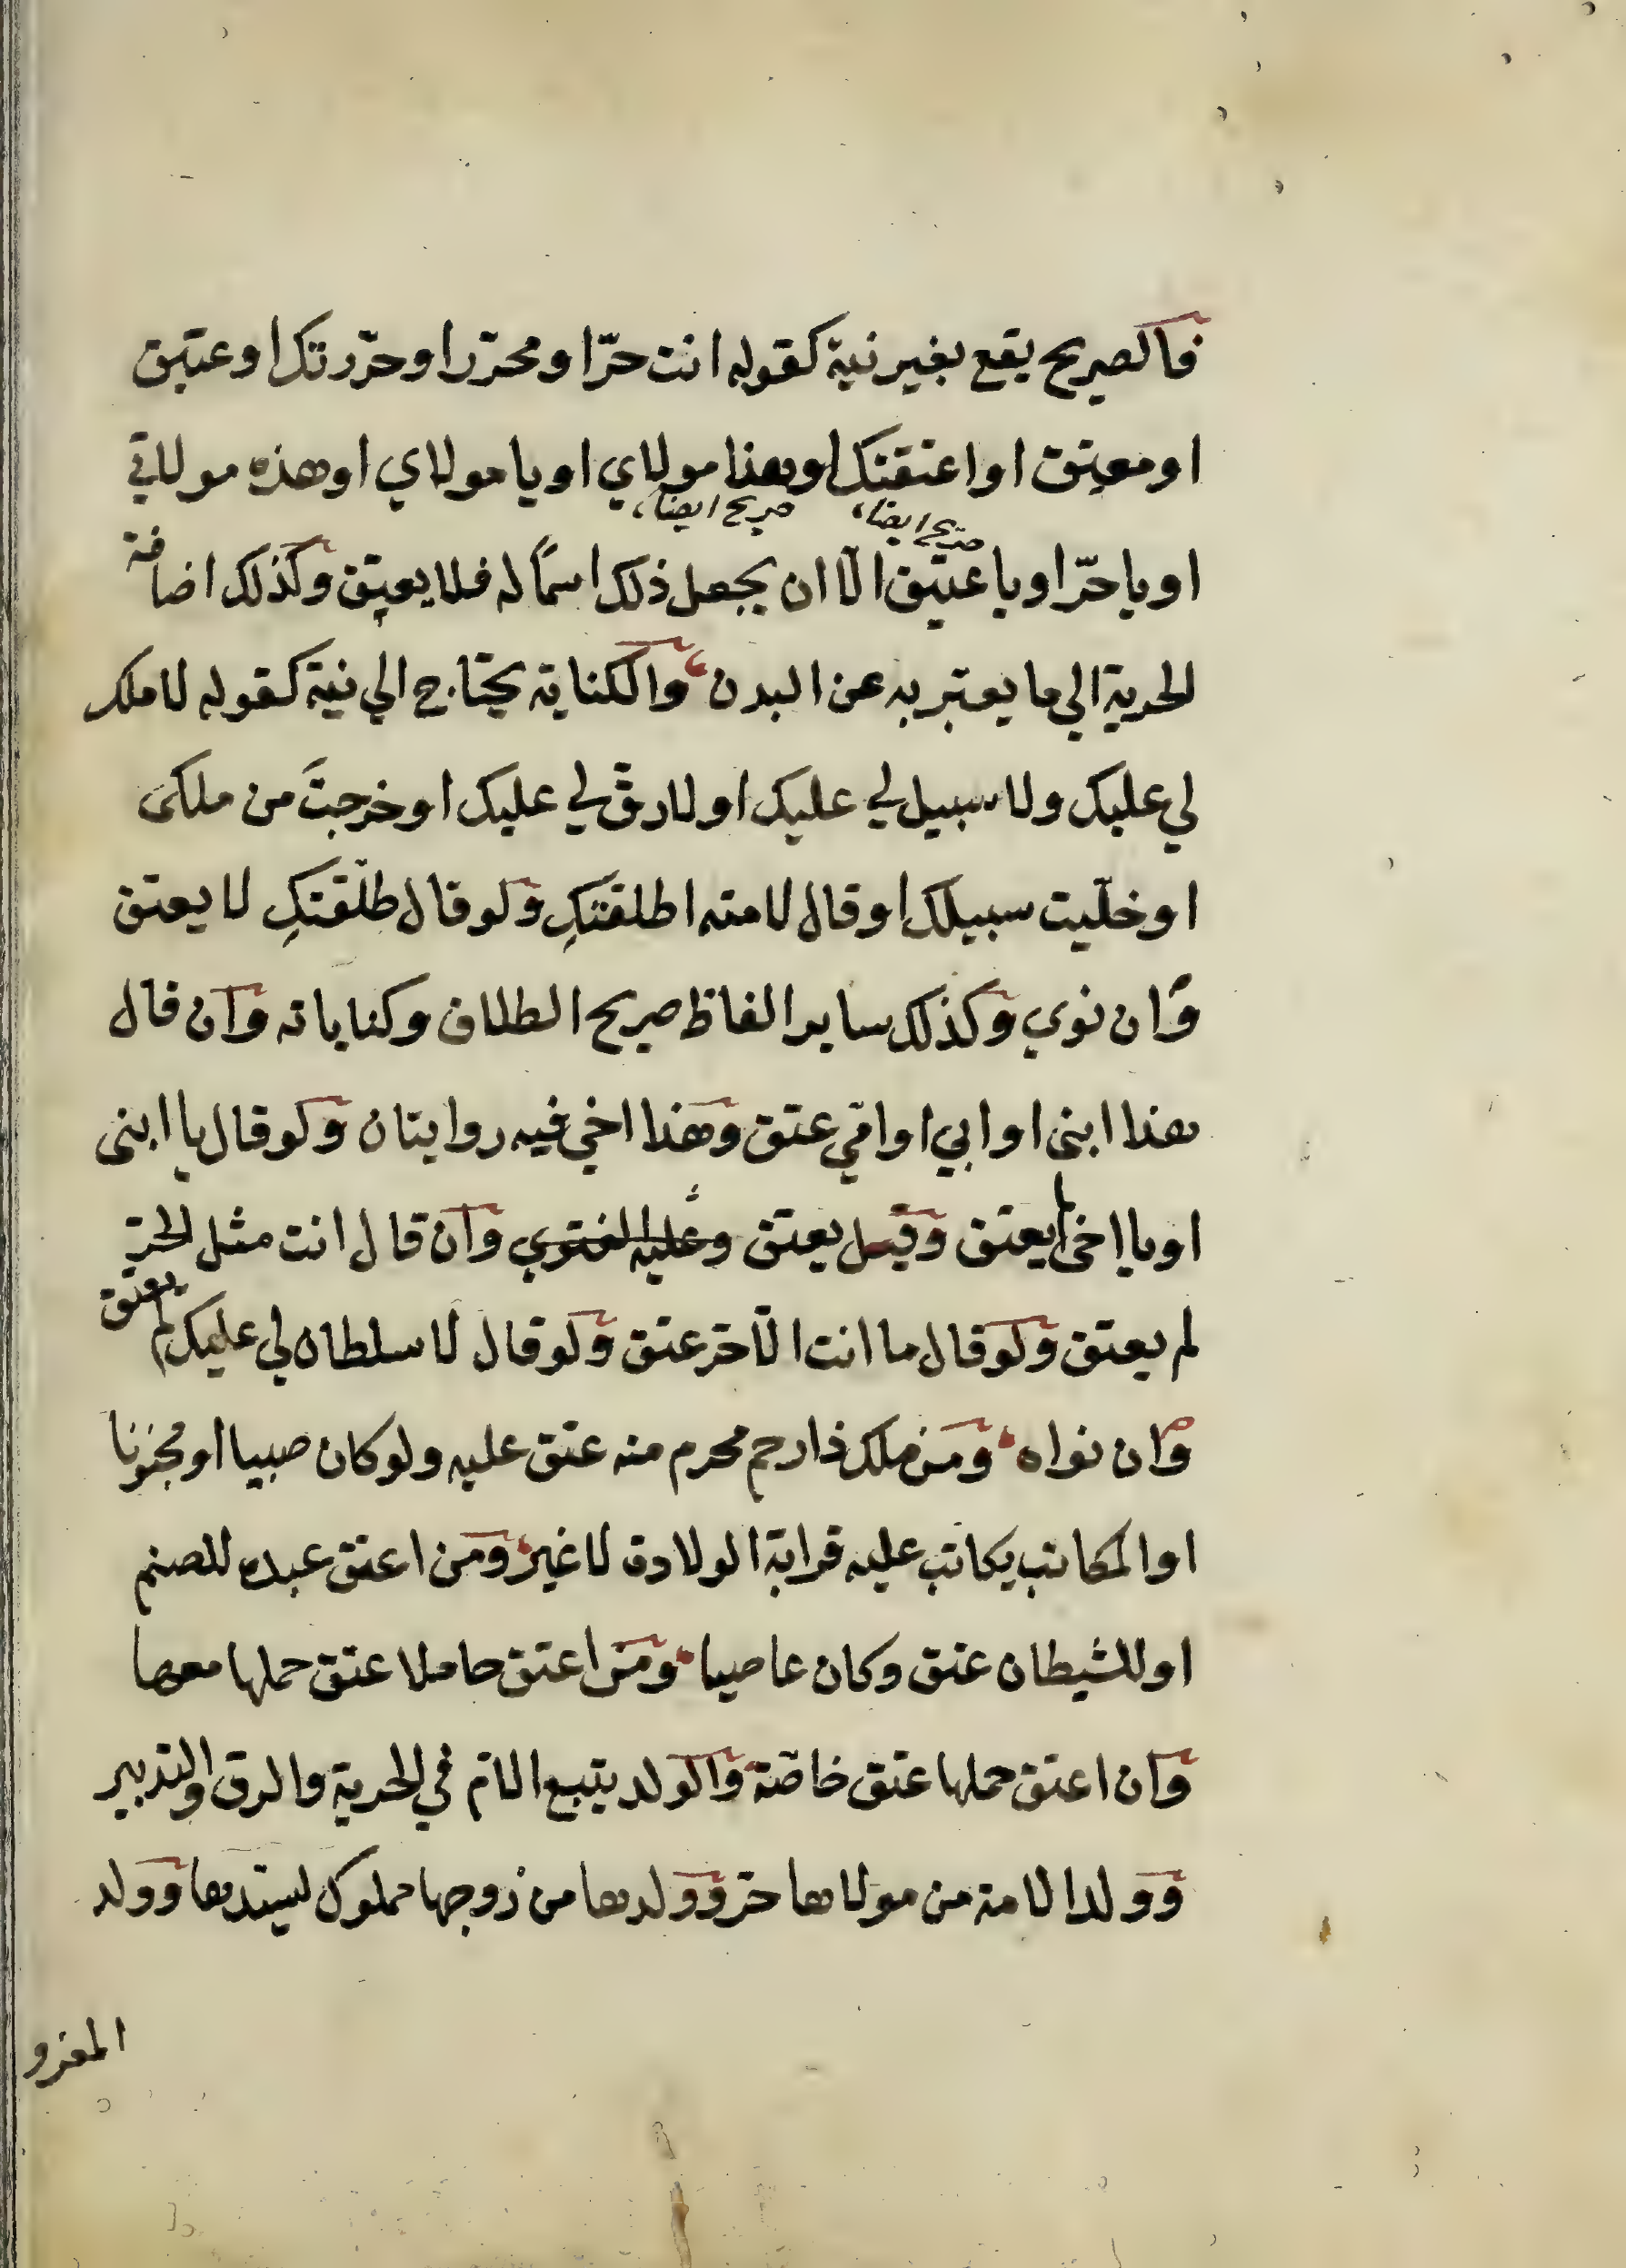 فالصريح يقع بغير نية كقوله انت حرّ او محرّر او حرّرتك او عتيق
او معتق او اعتقتك او هذا مولاي او يا مولاي او هذه مولاتي
صريح ايضا، صريح ايضا،
او يا حرّ او يا عتيق الّا ان يجعل ذلك اسمًا له فلا يعتق وكذلك اضافة
الحرية الي ما يعتبر به عن البدن، والكناية يحتاج الي نية كقوله لا ملك
لي عليك ولا سبيل لي عليك او لا رقّ لي عليك او خرجتَ من ملكى
او خلّيت سبيلك او قال لامته اطلقتكِ ولو قال طلّقتكِ لا يعتق
وان نوي وكذلك ساير الفاظ صريح الطلاق وكناياته وان قال
هذا ابنى او ابي او امّي عتق وهذا اخي فيه روايتان ولو قال يا ابنى
او يا اخى لا يعتق وقيل يعتق وعليه الفتوي وان قال انت مثل الحرّ
لم يعتق ولو قال ما انت الّا حرّ عتق ولو قال لا سلطان لي عليك لم يعتق
وان نواه، ومن ملك ذا رحم محرم منه عتق عليه ولو كان صبيا او مجنونا
او المكاتب يكاتب عليه قرابة الولادة لا غير، ومن اعتق عبده للصنم
او للشيطان عتق وكان عاصيا، ومن اعتق حاملا عتق حملها معها
وان اعتق حملها عتق خاصّة والولد يتبع الامّ في الحرية والرق والتدبير
وولد الامة من مولاها حرّ وولدها من زوجها مملوك لسيّدها وولد
المغرو